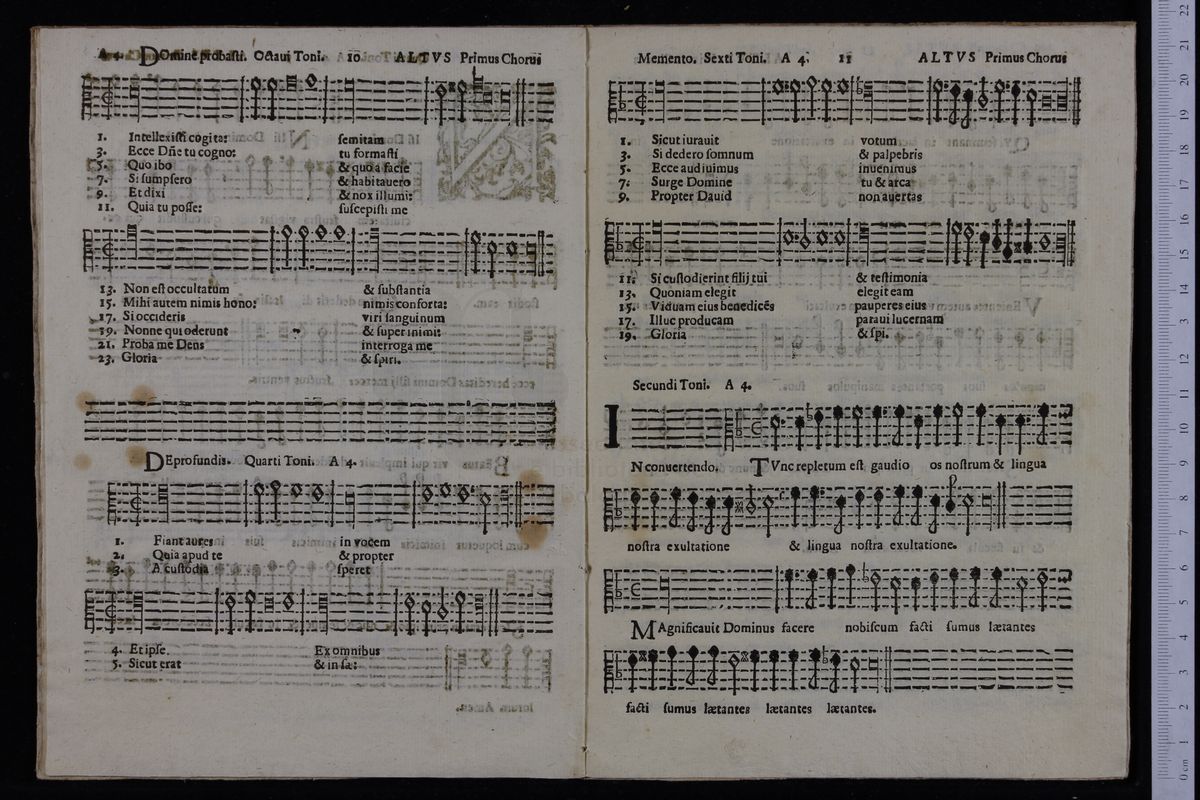 A 4. DOmine probasti. Octaui Toni. 10 ALTVS Primus Chorus
1. Intellexisti cogita: semitam
3. Ecce Dñe tu cogno: tu formasti
5. Quo ibo & quo a facie
7. Si sumpsero & habitauero
9. Et dixi & nox illumi:
11. Quia tu posse: suscepisti me
13. Non est occultatum & substantia
15. Mihi autem nimis hono: nimis conforta:
17. Si occideris viri sanguinum
19. Nonne qui oderunt & super inimi:
21. Proba me Deus interroga me
23. Gloria & spiri.
DEprofundis. Quarti Toni. A 4.
1. Fiant aures in vocem
2. Quia apud te & propter
3. A custodia speret
4. Et ipse. Ex omnibus
5. Sicut erat & in sæ:
Memento. Sexti Toni. A 4. 11 ALTVS Primus Chorus
1. Sicut iurauit votum
3. Si dedero somnum & palpebris
5. Ecce audiuimus inuenimus
7. Surge Domine tu & arca
9. Propter Dauid non auertas
11. Si custodierint filij tui & testimonia
13. Quoniam elegit elegit eam
15. Viduam eius benedicẽs pauperes eius
17. Illuc producam paraui lucernam
19. Gloria & spi.
Secundi Toni. A 4.
IN conuertendo. TVnc repletum est gaudio os nostrum & lingua
nostra exultatione & lingua nostra exultatione.
MAgnificauit Dominus facere nobiscum facti sumus lætantes
facti sumus lætantes lætantes lætantes.